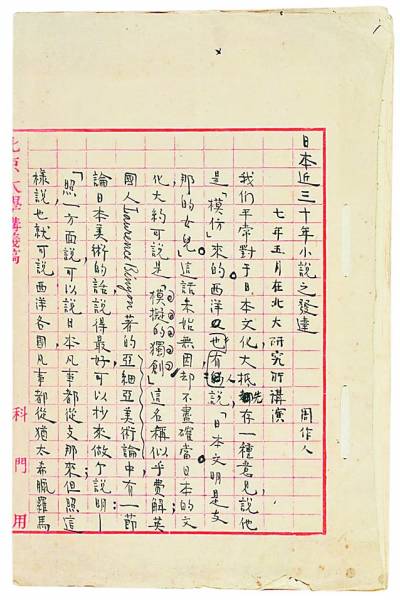 日本近三十年小說之發達
七年五月在北大研究所講演 周作人
我们平常對于日本文化大抵先存一種意見說他
是「模仿」來的西洋也有人說「日本文明是支
那的女兒」。這話未始無因，却不盡確當。日本的文
化大約可說是「模擬的獨創」這名稱似乎費解英
國人Laurence Binyon著的亞細亞美術論中有一節
論日本美術的話說得最好可以抄來做个說明——
「照一方面說可以說日本凡事都從支那來；但照這
樣說也就可說西洋各國凡事都從猶太希臘羅馬
北京大學講義稿 科 門 用